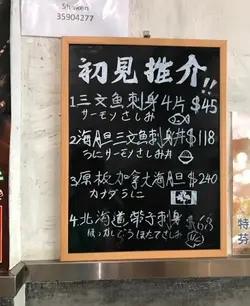 35904277
初見推介!!
1 三文魚刺身4片 $45
サーモンさしみ
2 海胆三文魚刺身丼 $118
うにサーモンさしみ丼
3. 原板加拿大海胆 $240
カナダうに
4. 北海道帶子刺身 $68
ほっかいどうほたてさしみ
特
芬